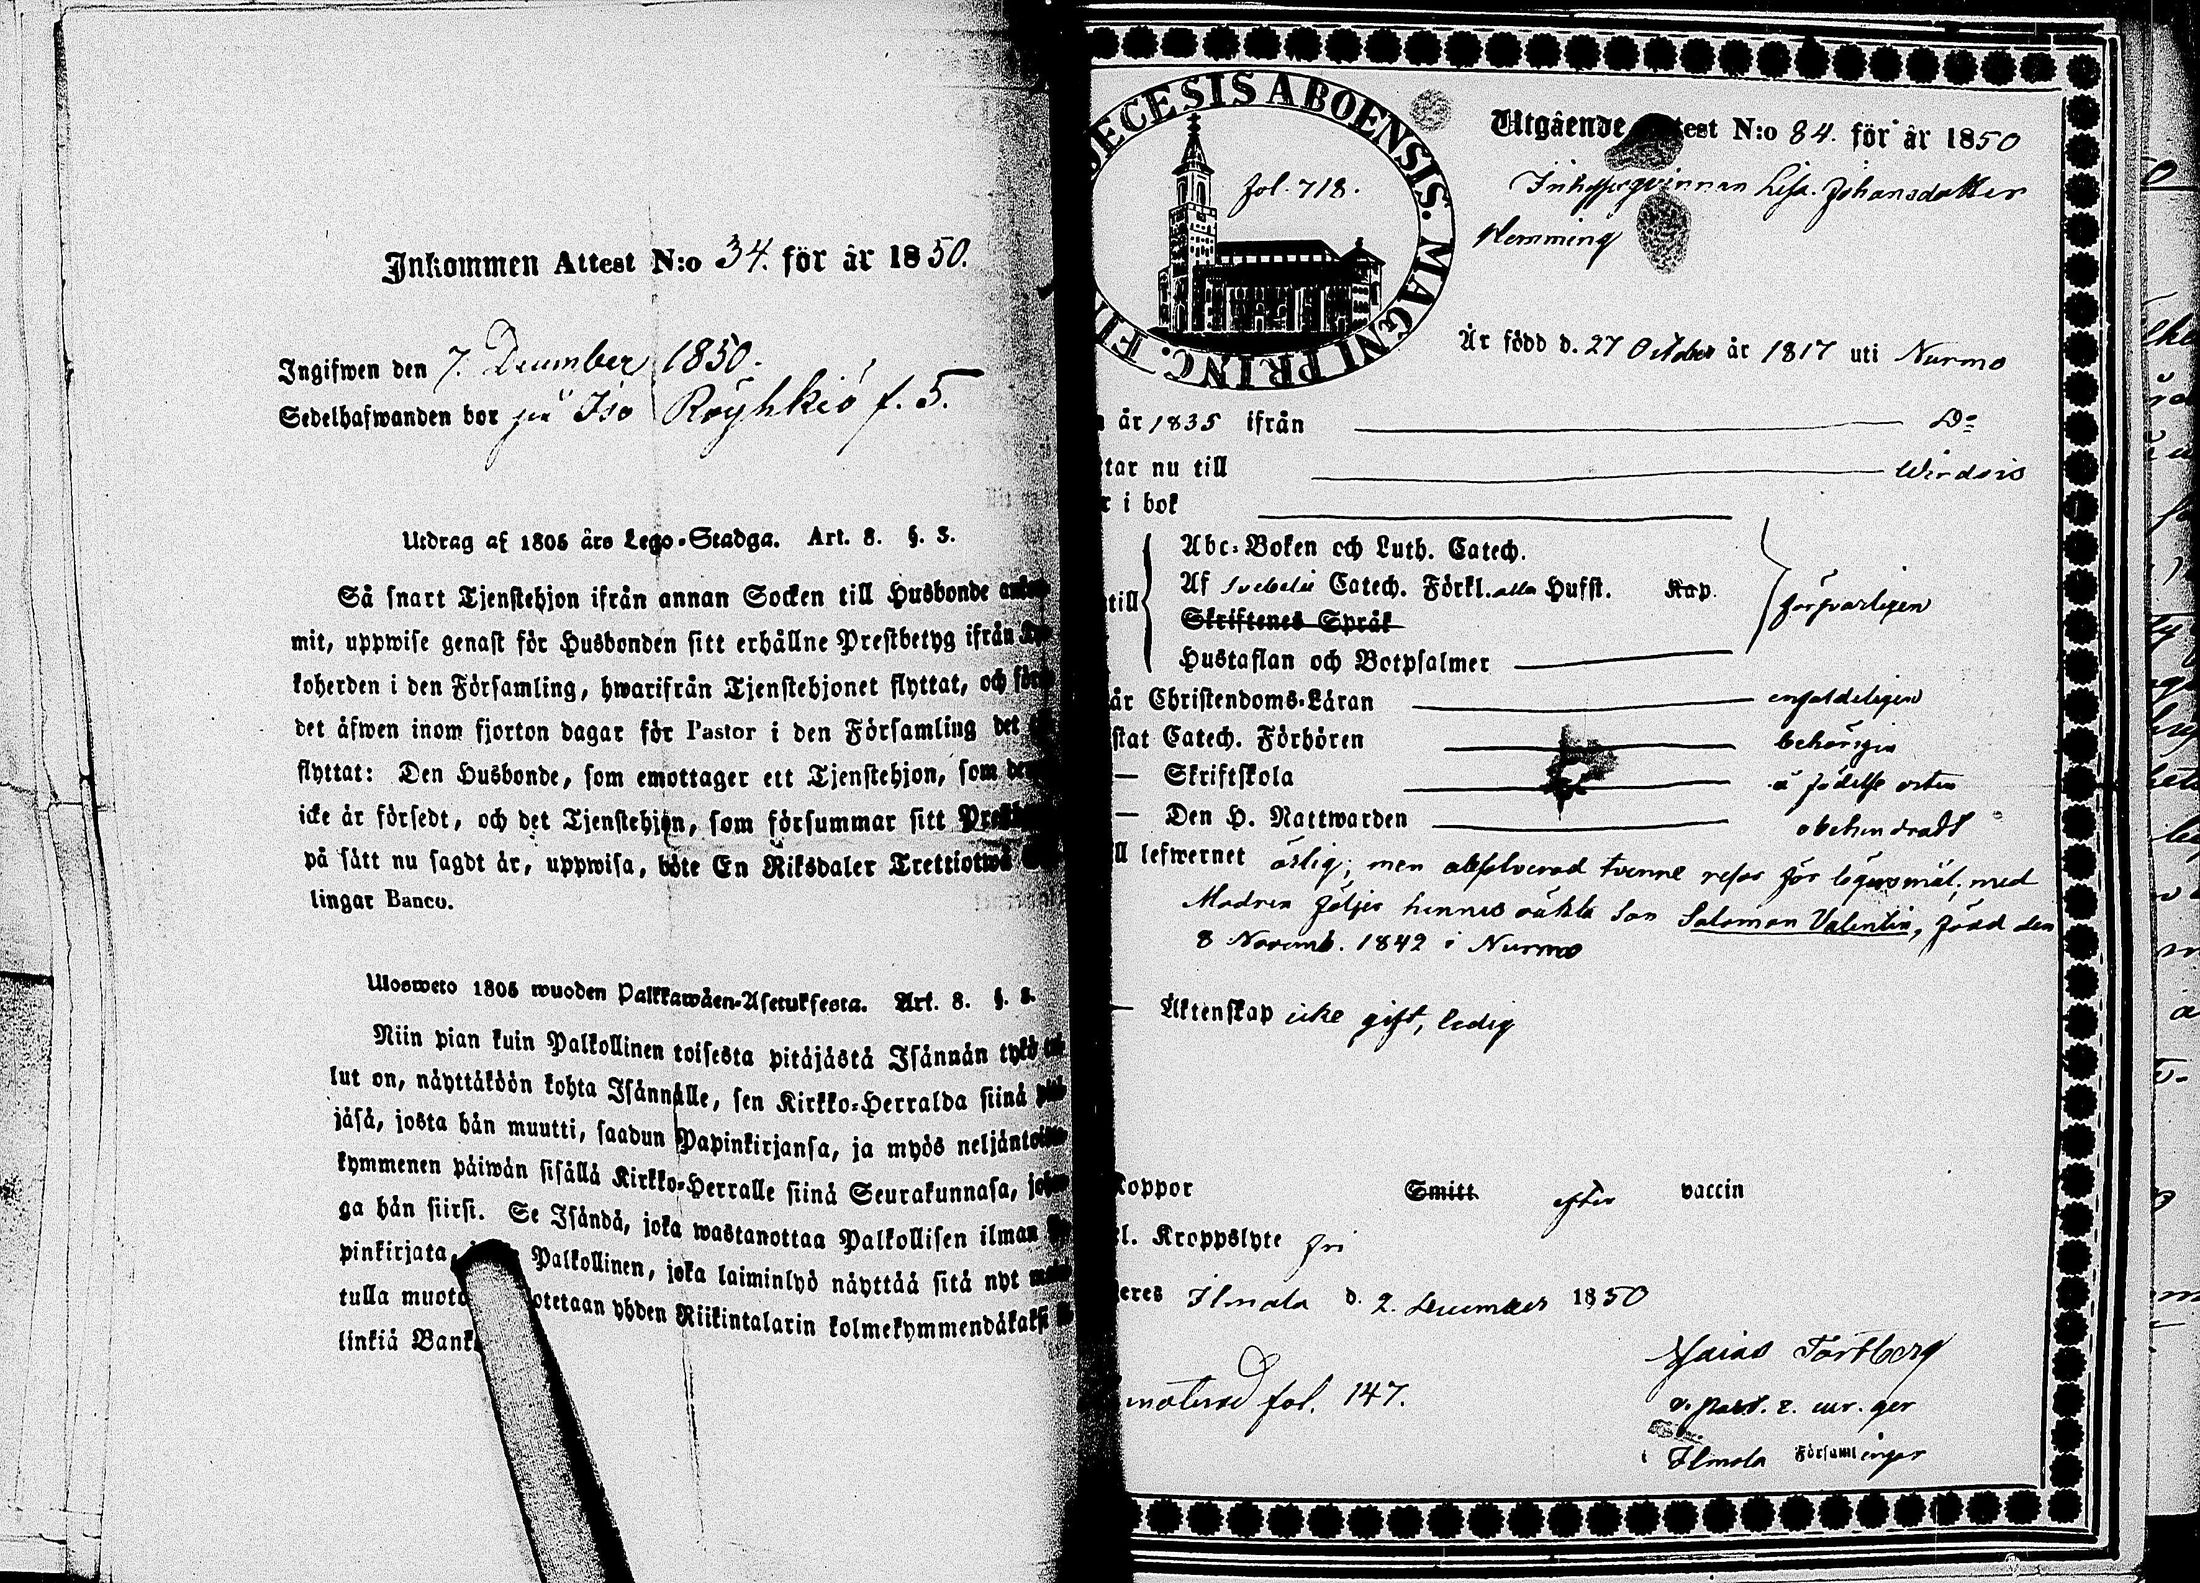 Inkommen Attest N:o 34. för år 1850.
Ingifwen den 7. December 1850.
Sedelhafwanden bor på Iso Röyhkiö f. 5.
Utdrag af 1805 års Lego-Stadga. Art. 8. §. 3.
Så snart Tjenstehjon ifrån annan Socken till Husbonde
mit, uppwise genast för Husbonden sitt erhållne Prestbetyg ifrån
koherden i den Församling, hwarifrån Tjenstehjonet flyttat, och
det äfwen inom fjorton dagar för Pastor i den Församling det
flyttat: Den Husbonde, som emottager ett Tjenstehjon, som
icke är försedt, och det Tjenstehjon, som försummar sitt
på sätt nu sagdt är, uppwisa, böte En Riksdaler Trettiotwå
lingar Banco.
Ulosweto 1805 wuoden Palkkawäen-Asetuksesta. Art. 8. §. 3.
Niin pian kuin Palkollinen toisesta pitäjästä Isännän tykö
lut on, näyttäköön kohta Isännälle, sen Kirkko-Herralda siinä
jäsä, josta hän muutti, saadun Papinkirjansa, ja myös
kymmenen päiwän sisällä Kirkko-Herralle siinä Seurakunnasa,
ga hän siirsi. Se Isändä, joka wastanottaa Palkollisen ilman
pinkirjata, Palkollinen, joka laiminlyö näyttää sitä nyt
tulla otetaan yhden Riikintalarin kolmekymmendäkaksi
linkiä
DIECESIS ABOENSIS. MAGNI PRINC.
fol. 718.
Utgående N:o 84. för år 1850
Inhysesqvinnan Lisa Johansdotter
Hemming
Är född d. 27 October år 1817 uti Nurmo
år 1835 ifrån D:o
tar nu till Wirdois
i bok
till
Abc-Boken och Luth. Catech.
Af Svebelii Catech. Förkl. alla Husst. Kap.
Skriftenes Språk
Hustaflan och Botpsalmer
försvarligen
år Christendoms-Läran enfaldeligen
stat Catech. Förhören behörigen
— Skriftskola å födelse orten
— Den H. Nattwarden obehindradt
ll lefwernet ärlig; men absolverad tvenne resor för lägersmål; med
Modren följer hennes oäkta Son Salomon Valentin, född den
8 Novemb. 1842 i Nurmo
— Äktenskap icke gift, ledig
Koppor Smitt efter vaccin
l. Kroppslyte fri
eres Ilmola d. 2. December 1850
noterad fol. 147.
v. past.
Ilmola Församlingar